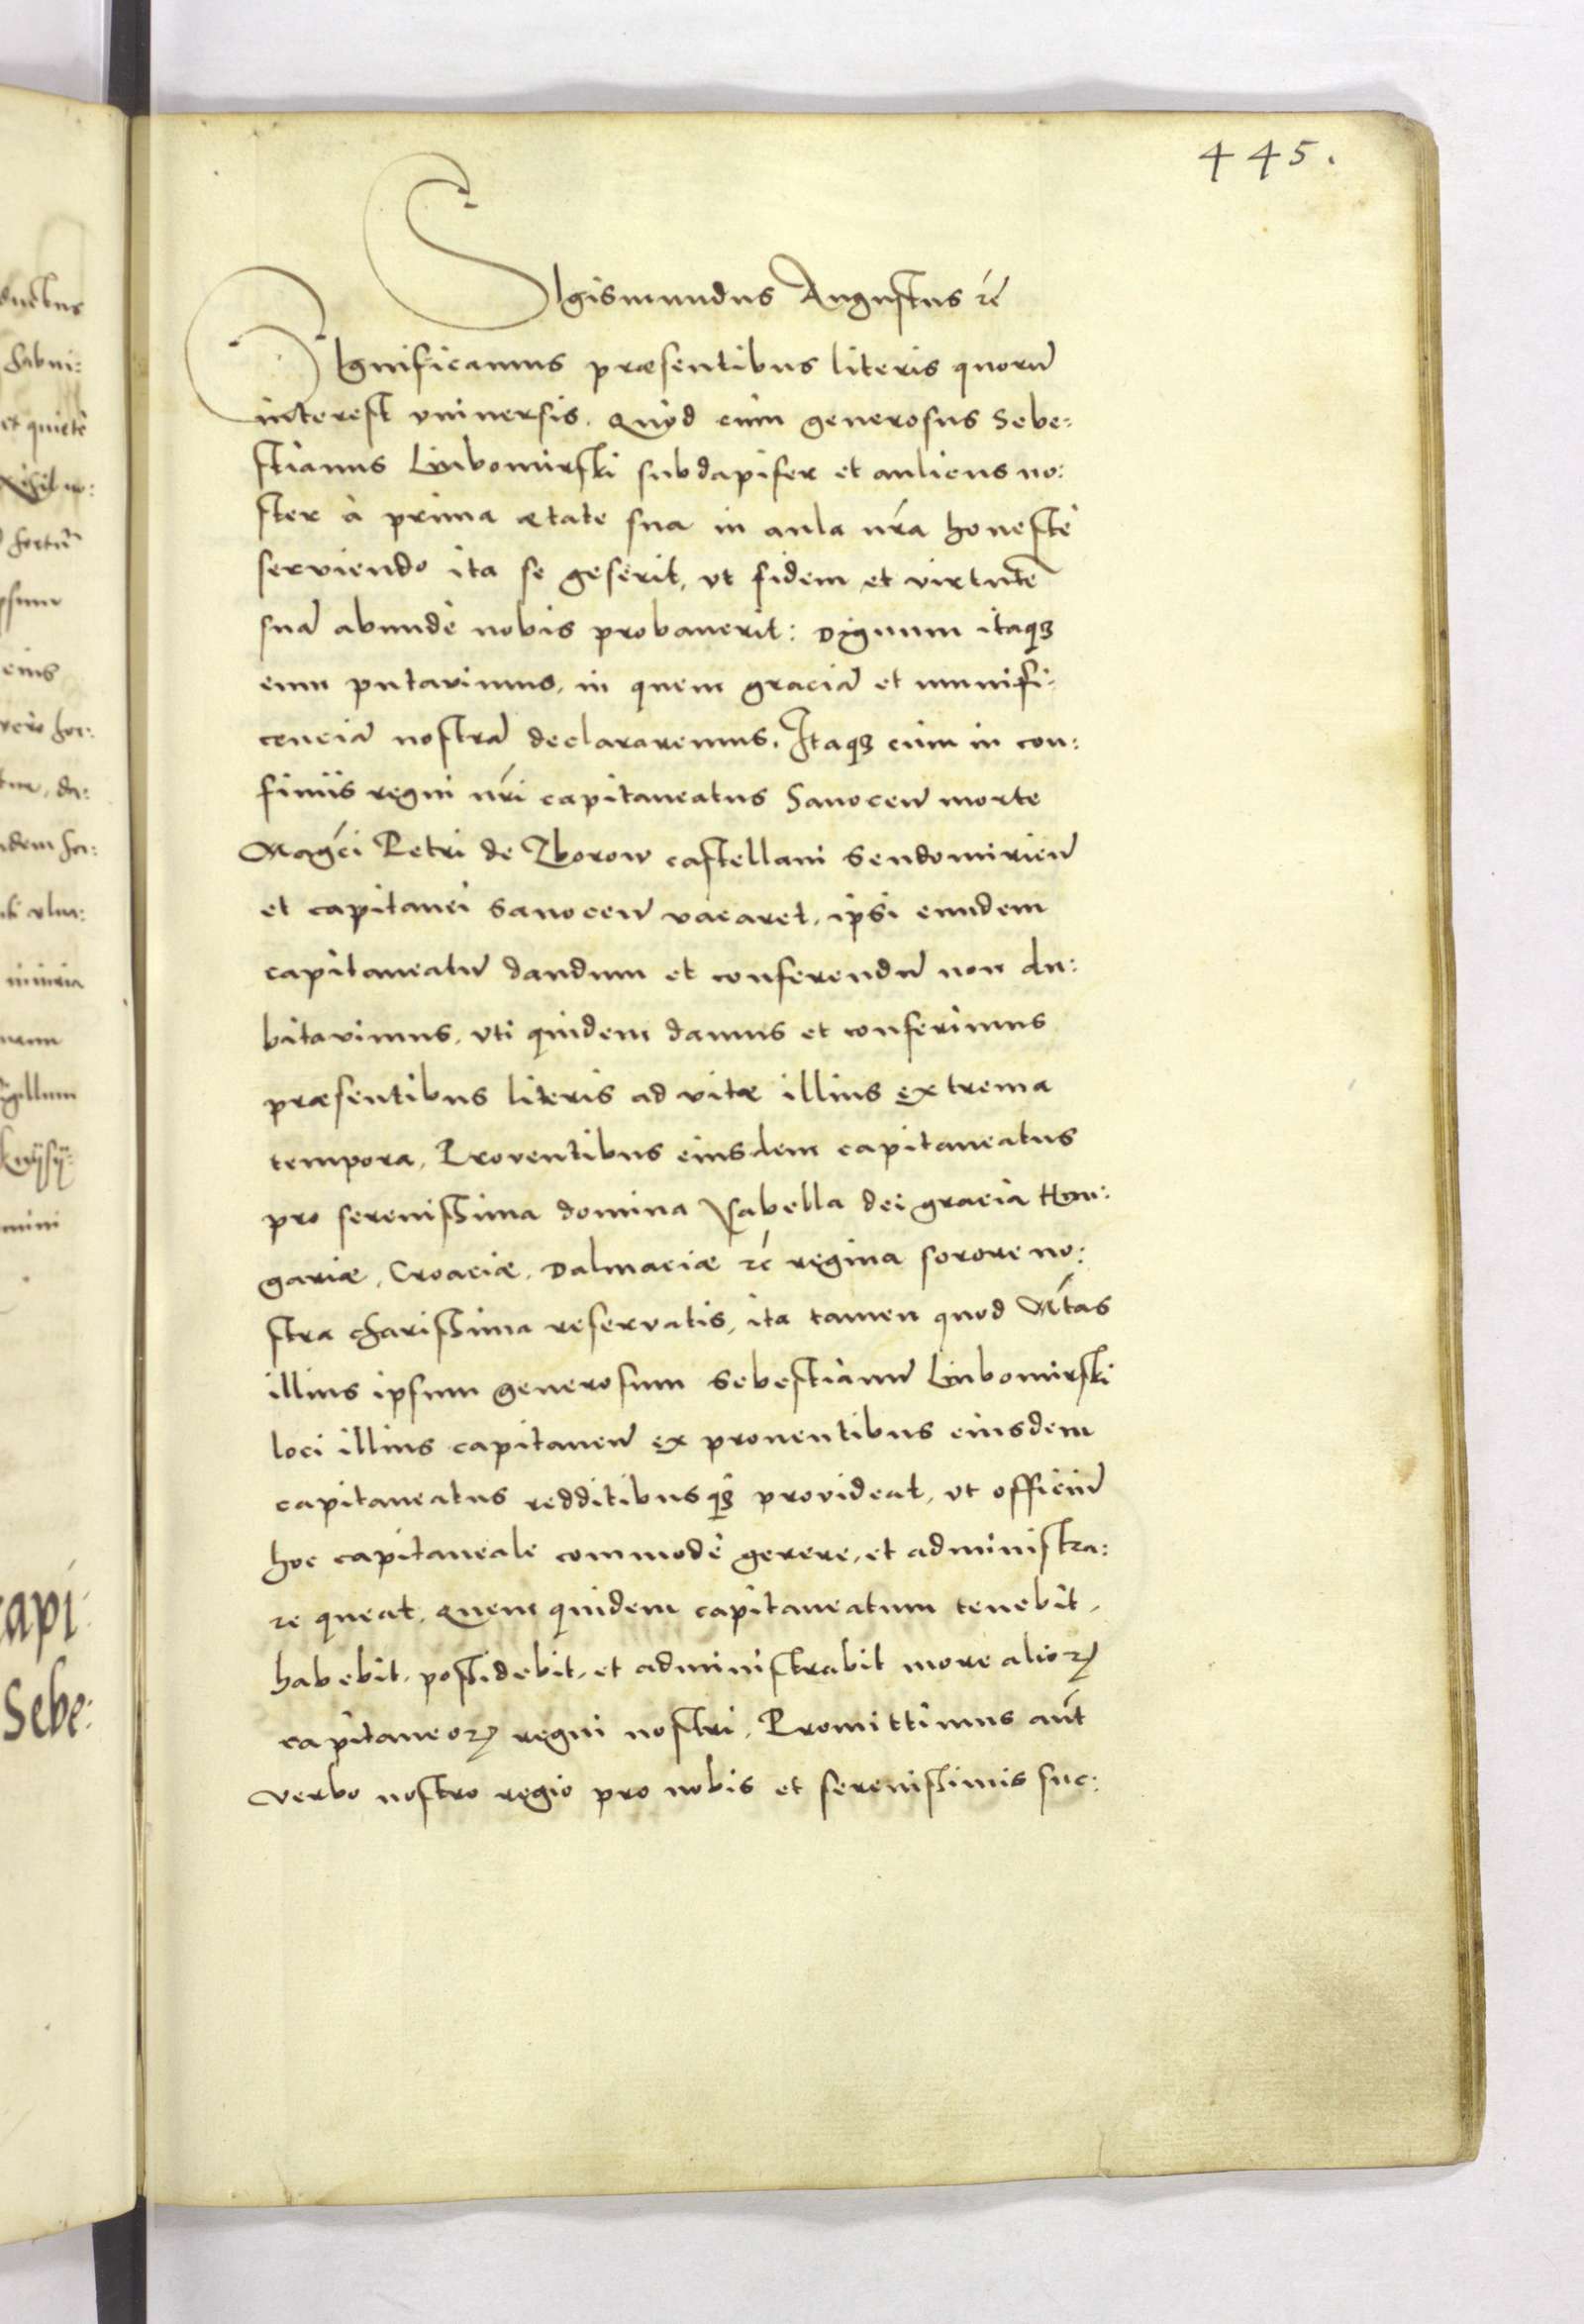 445.
SIgismundus Augustus rc̃
SIgnificamus præsentibus literis quorũ
interest vniuersis. Quod cum generosus Sebe:
stianus Liubomirski subdapifer et aulicus no:
ster à prima ætate sua in aula nr̃a honestè
serviendo ita se geserit, vt fidem et virtutẽ
suã abundè nobis probauerit: Dignum itaqȝ
eum putavimus, in quem graciã et munifi:
cenciã nostrã declararemus. Itaqȝ cùm in con:
finiis regni nr̃i capitaneatus Sanocen̄ morte
Magc̃i Petri de Zborow castellani Sendomirien̄
et capitanei Sanocen̄ vacaret, ipsi eundem
capitaneatũ dandum et conferendũ non du:
bitavimus, vti quidem damus et conferimus
præsentibus literis ad vitæ illius extrema
tempora, Proventibus eiusdem capitaneatus
pro serenissima domina Ysabella dei gracia Hun:
gariæ, Croaciæ, Dalmaciæ rc̃ regina sorore no:
stra charissima reservatis, ita tamen quod Mt̃as
illius ipsum generosum Sebestianũ Liubomirski
loci illius capitaneũ ex prouentibus eiusdem
capitaneatus redditibusqȝ provideat, vt officiũ
hoc capitaneale commodè gerere, et administra:
re queat. Quem quidem capitaneatum tenebit,
habebit, possidebit, et administrabit more alioꝝ
capitaneoꝝ regni nostri. Promittimus aut̃
verbo nostro regio pro nobis et serenissimis suc: